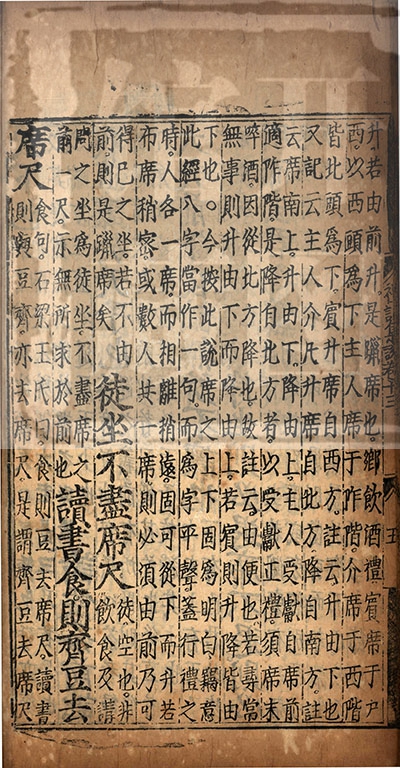 升若由前升是躐席也鄉飲酒禮賓席于戶
西以西頭爲下主人席于阼階介席于西階
皆北頭爲下賓升席自西方註云升由下也
又記云主人介凡升席自北方降自南方註
云席南上升由下降由上主人受獻自席前
適阼階是降自北方者以受獻正禮須席末
啐酒因從北方降也故註云由便也若尋常
無事則升由下而降由上若賓則升降皆由
下也今按此說席之上下固爲明白竊意
此經八字當作一句爲字平聲蓋行禮之
時人各一席而相離稍遠固可從下而升若
布席稍密或數人共一席則必須由前乃可
得巳之坐若不由
前則是躐席矣 徒坐不盡席尺 徒空也非飲食及講
問之坐爲徒坐不盡席之
前一尺示無所求於前也 讀書食則齊豆去
席尺 食句石梁王氏曰食則豆去席尺讀書
則與豆齊亦去席尺是謂齊豆去席尺
禮記集說卷十三
五